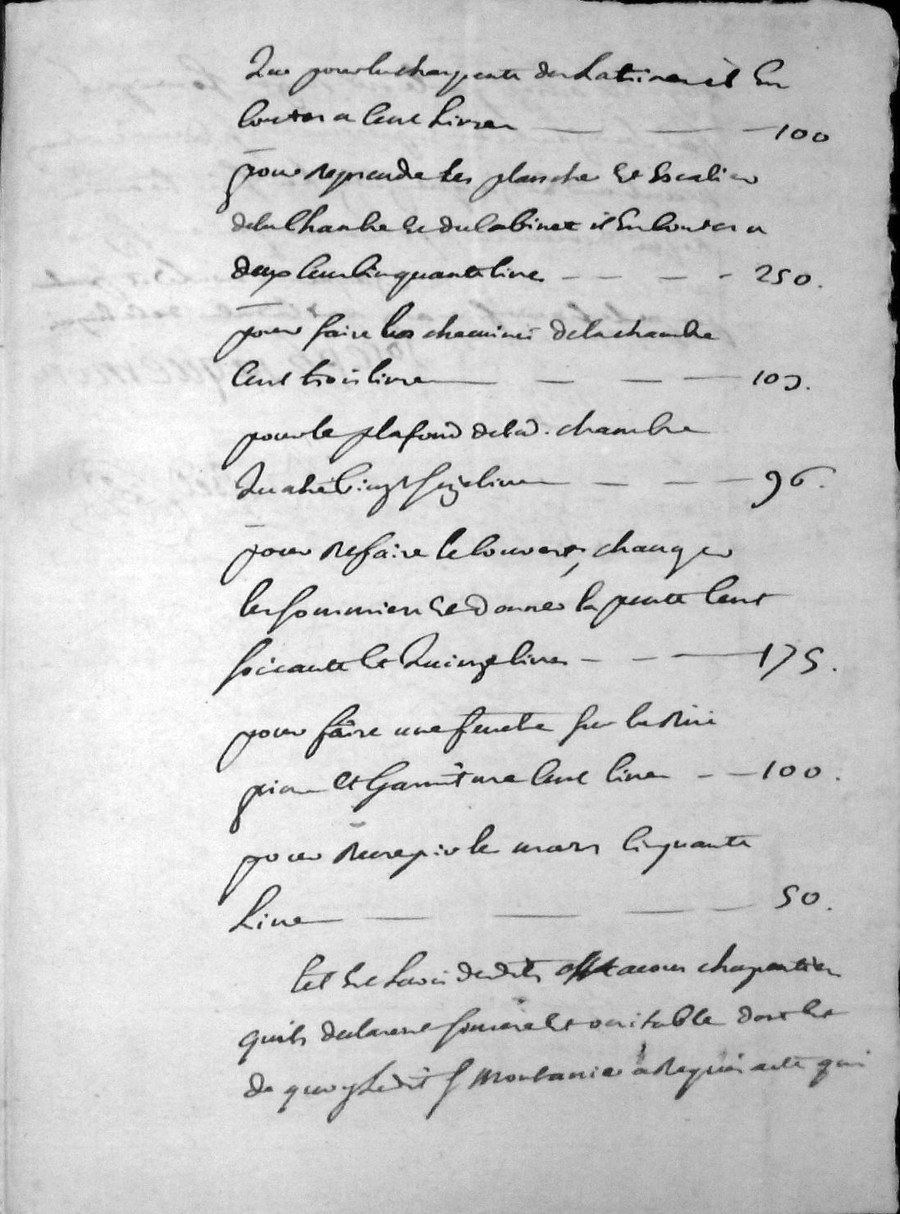 Que pour la charpente des Latrines il En
Coutera Cent Livres 100
pour reprendre Les planche Et Escalier
dela Chambre Et du Cabinet il En Coutera
deux Cent Cinquante livre 250.
pour faire la cheminée dela chambre
Cent trois livres 103.
pour le plafond de lad. chambre
Quatre Vingt Seize livres 96.
pour Refaire le Couvert, changer
les Sommiers Et donner la pente Cent
Soixante Et Quinze livres 175.
pour faire une fenetre Sur la Rüe
pierre Et Garniture Cent livres 100.
pour Recrepir le murs Cinquante
Livre 50.
Tel Est Lavis desdits macons charpentier
quils declarent Sincere Et veritable
de quoy Ledit S Montanier a Requis acte qui